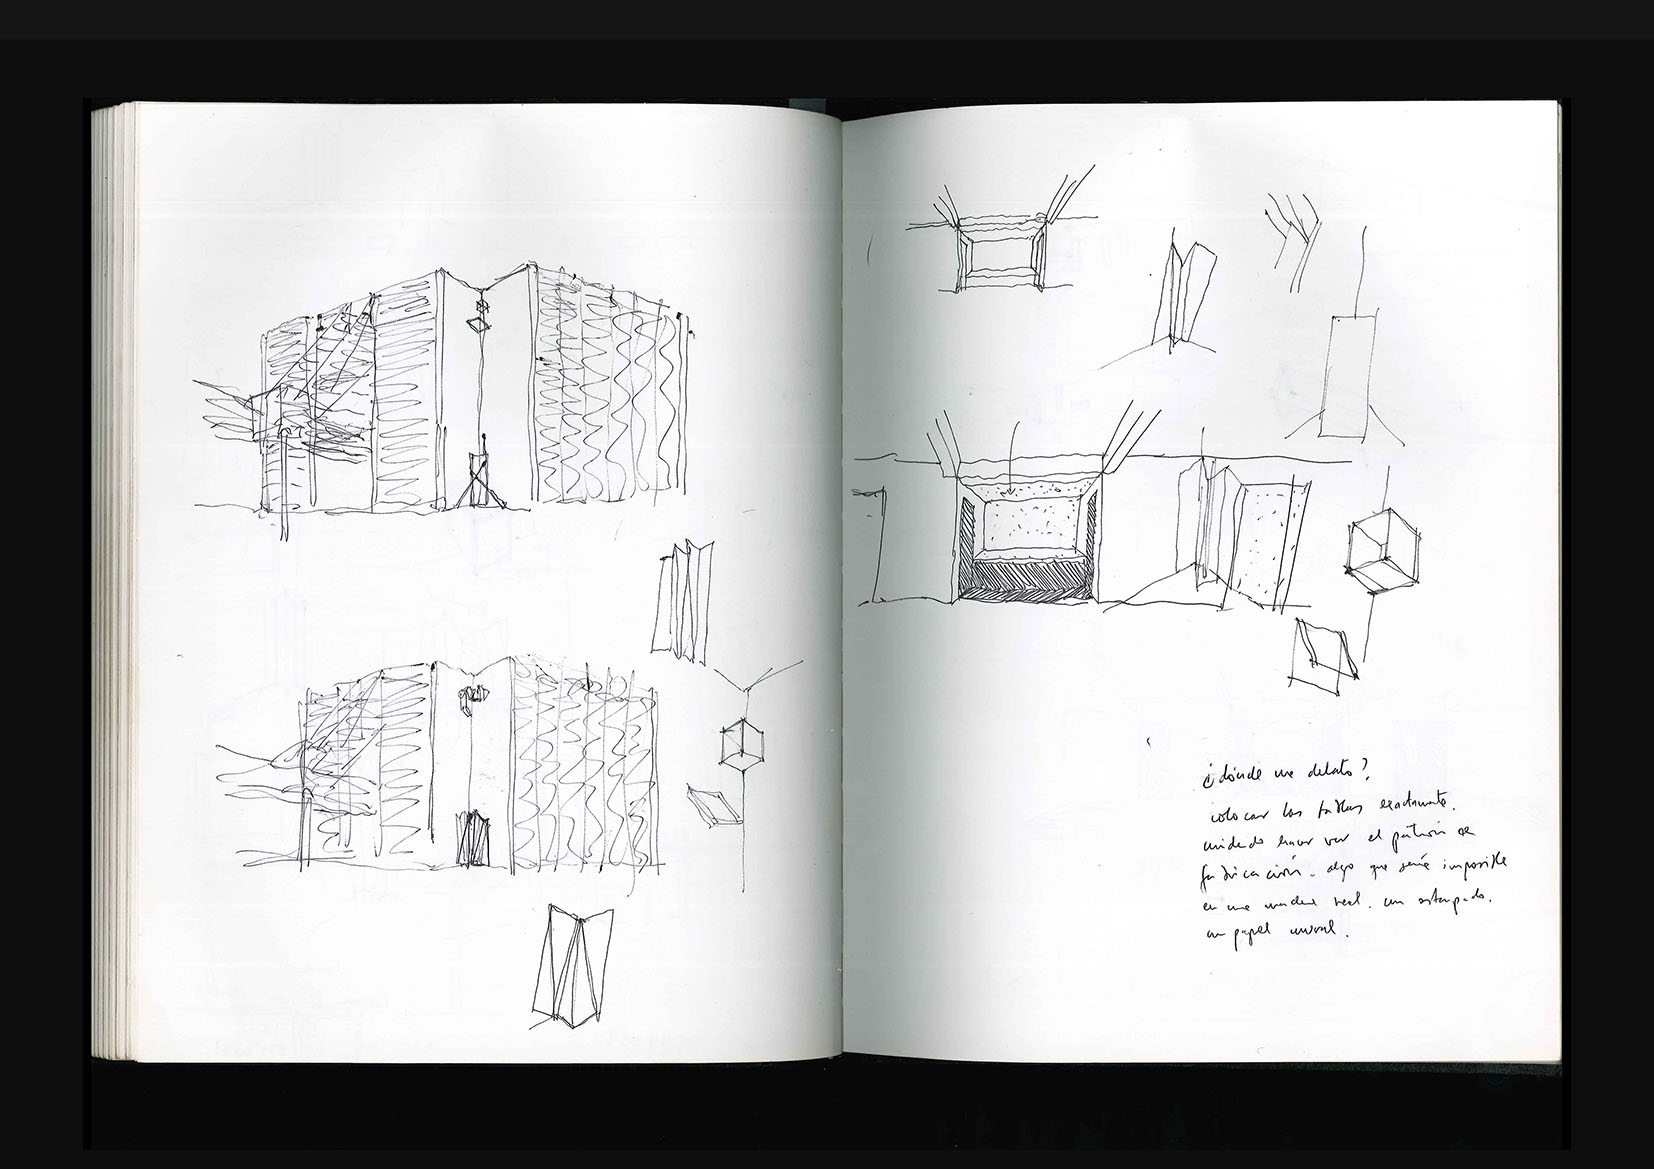 ¿dónde me delato?
colocar las tablas exactamente.
cuidado hacer ver el patrón de
fabricación. algo que sería imposible
en una madera real. un estampado.
un papel mural.